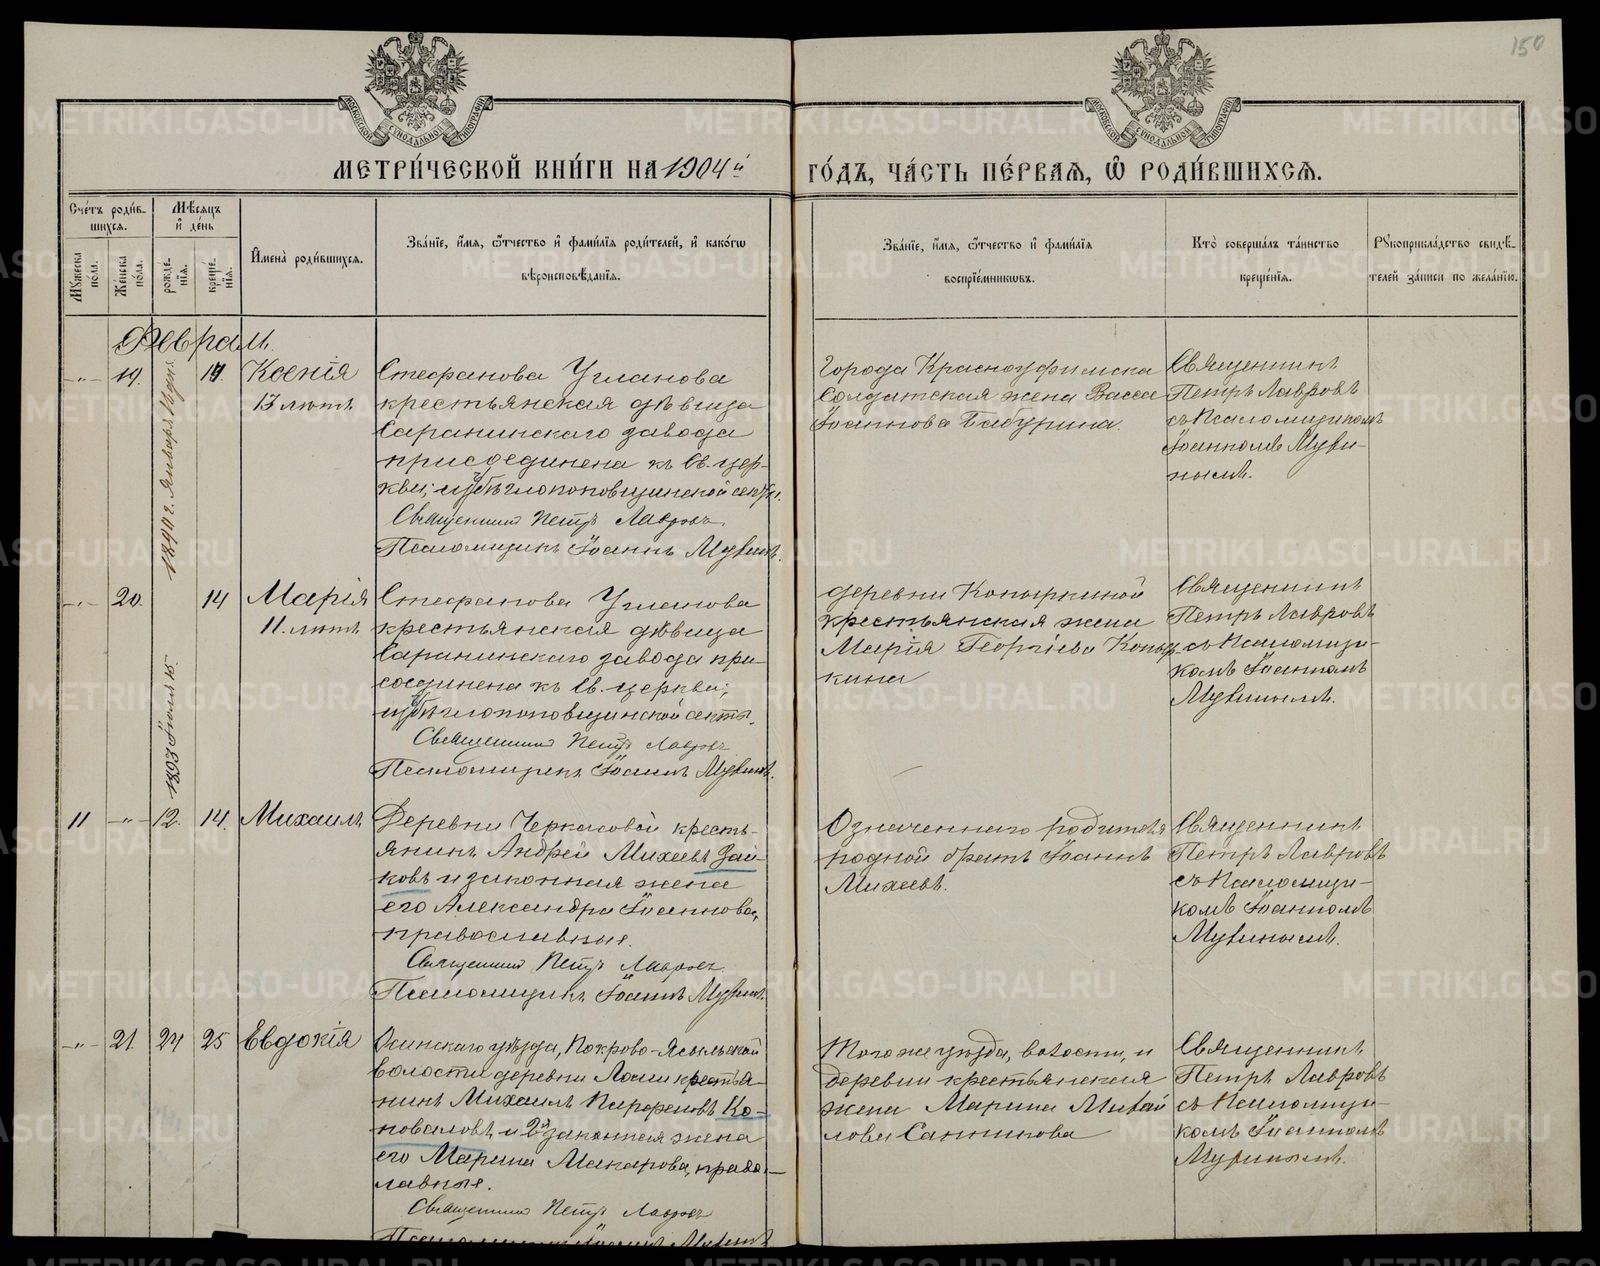 150
МЕТРИ́ЧЕСКОЙ КНИ́ГИ НА 1904й ГО́ДЪ, ЧА́СТЬ ПЕ́РВАѦ, Ѡ РОДИ́ВШИХСѦ.
Сче́тъ роди́вшихсѧ.
Мѣ́сѧцъ и҆ де́нь
Му́жеска по́ла.
Же́нска по́ла.
рожде́нїѧ.
креще́нїѧ.
И҆мена̀ роди́вшихсѧ.
Зва́нїе, и҆́мѧ, ѻ҆́тчество и҆ фами́лїѧ роди́телей, и҆ како́гѡ
вѣроисповѣ́данїѧ.
Зва́нїе, и҆́мѧ, ѻ҆́тчество и҆ фами́лїѧ
воспрїе́мникѡвъ.
Кто̀ соверша́лъ та́инство
креще́нїѧ.
Рꙋкоприкла́дство свидѣ́-
телей за́писи по жела́нїю.
Февраль
-"- 19. 14. Ксенія
13 лѣтъ
1890 г. Января
Стефанова Угланова
крестьянская дѣвица
Саранинскаго завода
присоединена къ Св. цер-
кви; изъ бѣглопоповщинской секты.
Священникъ Петръ Лавровъ.
Псаломщикъ Іоаннъ Мувинъ.
Города Красноуфимска
Солдатская жена Васса
Іоаннова Бабурина.
Священникъ
Петръ Лавровъ
съ Псаломщикомъ
Іоанномъ Муви-
нымъ.
-"- 20. 14 Марія
11. лѣтъ
1893 Іюля 15.
Стефанова Угланова
крестьянская дѣвица
Саранинскаго завода при-
соединена къ Св. церкви;
изъ бѣглопоповщинской секты.
Священникъ Петръ Лавровъ
Псаломщикъ Іоаннъ Мувинъ.
деревни Копыркиной
крестьянская жена
Марія Георгіева Копыр-
кина
Священникъ
Петръ Лавровъ
съ Псаломщи-
комъ Іоанномъ
Мувинымъ.
11 -"- 12. 14. Михаилъ
Деревни Черкасовой кресть-
янинъ Андрей Михеевъ Зай-
ковъ и законная жена
его Александра Іоаннова,
православные.
Священникъ Петръ Лавровъ.
Псаломщикъ Іоаннъ Мувинъ.
Означеннаго родителя
родной братъ Іоаннъ
Михеевъ.
Священникъ
Петръ Лавровъ
съ Псаломщи-
комъ Іоанномъ
Мувинымъ.
-"- 21. 24 25 Евдокія
Осинскаго уѣзда, Покрово-Ясыльской
волости деревни Ломи крестья-
нинъ Михаилъ Парфеновъ Ко-
новаловъ и 2я законная жена
его Марина Макарова, право-
славные.
Священникъ Петръ Лавровъ
Псаломщикъ Іоаннъ Мувинъ
Того же уѣзда, волости, и
деревни крестьянская
жена Марина Михай
лова Санникова
Священникъ
Петръ Лавровъ
съ Псаломщи-
комъ Іоанномъ
Мувинымъ.
METRIKI.GASO-URAL.RU